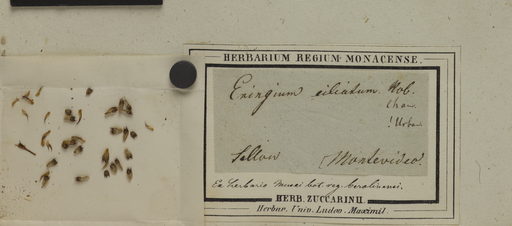 HERBARIUM REGIUM MONACENSE.
Eringium ciliatum. Hob.
Cham.
! Urban
Sellow Montevideo.
Ex herbario Musei bot. reg. berolinensi.
HERB. ZUCCARINII.
Herbar. Univ. Ludov. Maximil.